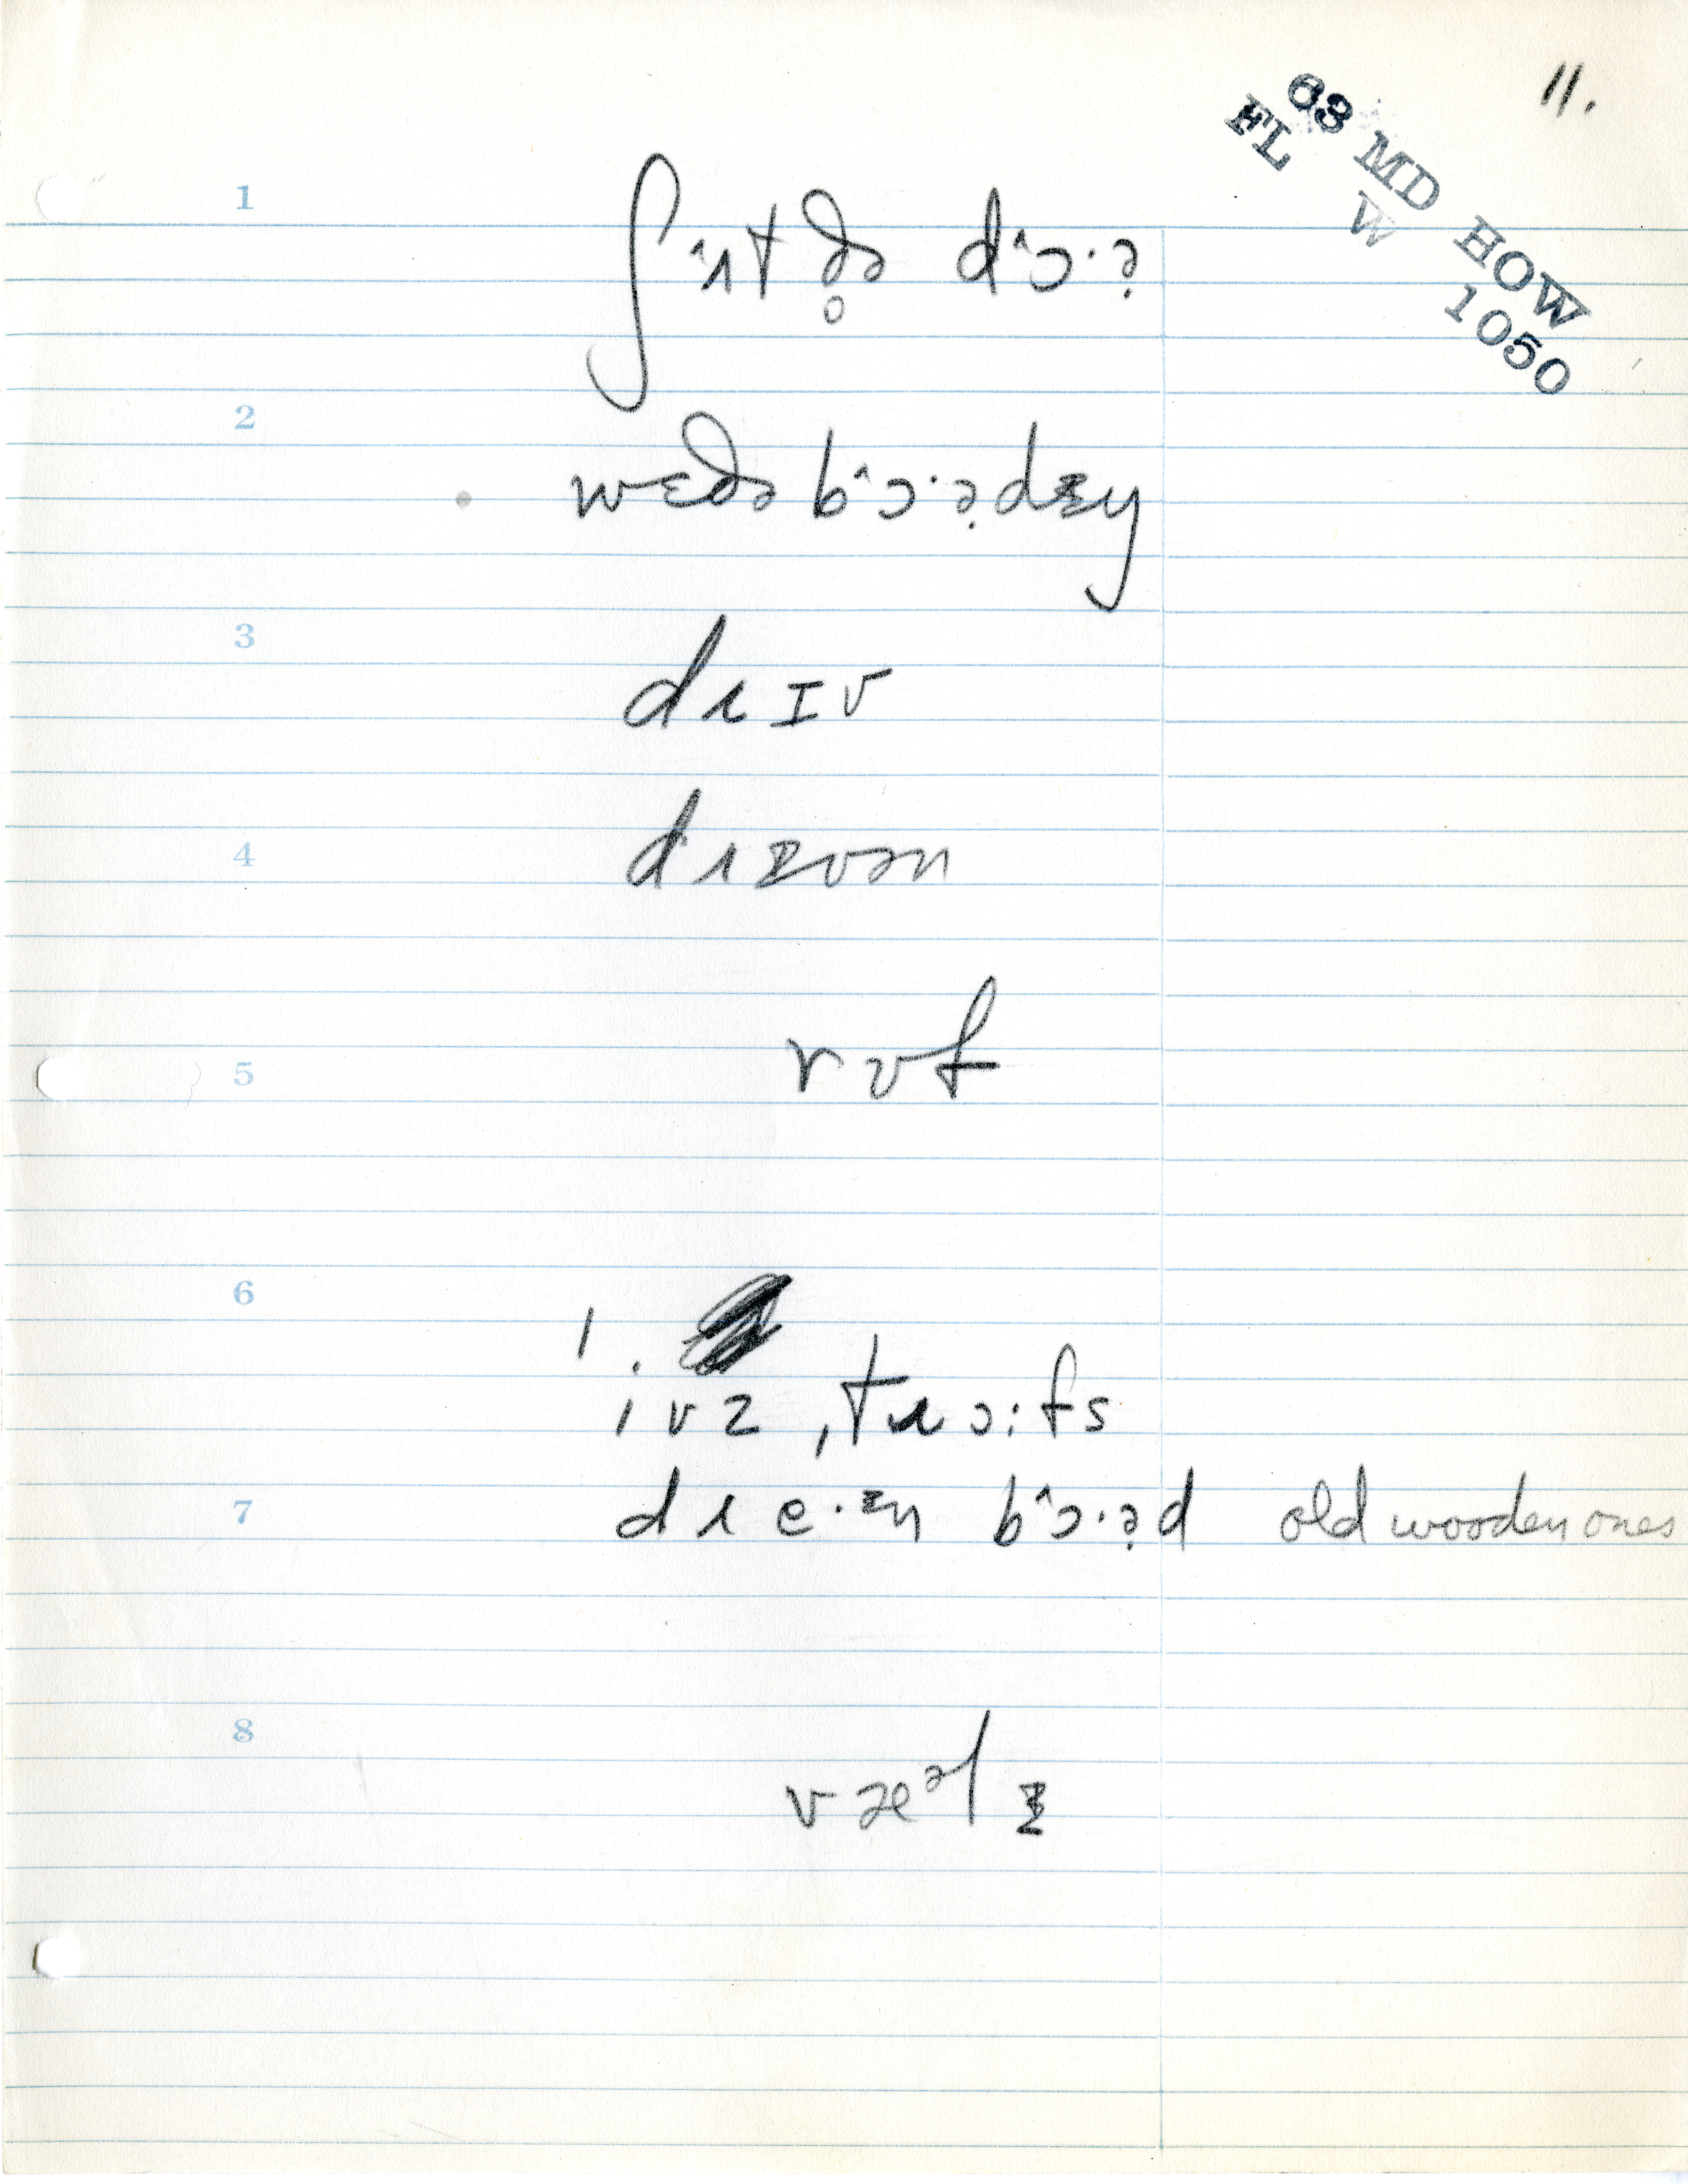 11.
63 MD HOW
FL W 1050
1
ʃʌ̂t ðə̥ dɔ̂·ə̣
2
wɛðə bɔ̂·ə̣dɪŋ
3
dɹɪv
4
dɹɪvən
5
rʊf
6
1.
ivz, tɹɔːfs
7
dɹe·ɪn bɔ̂·ə̣d old wooden ones
8
væᵊlɪ